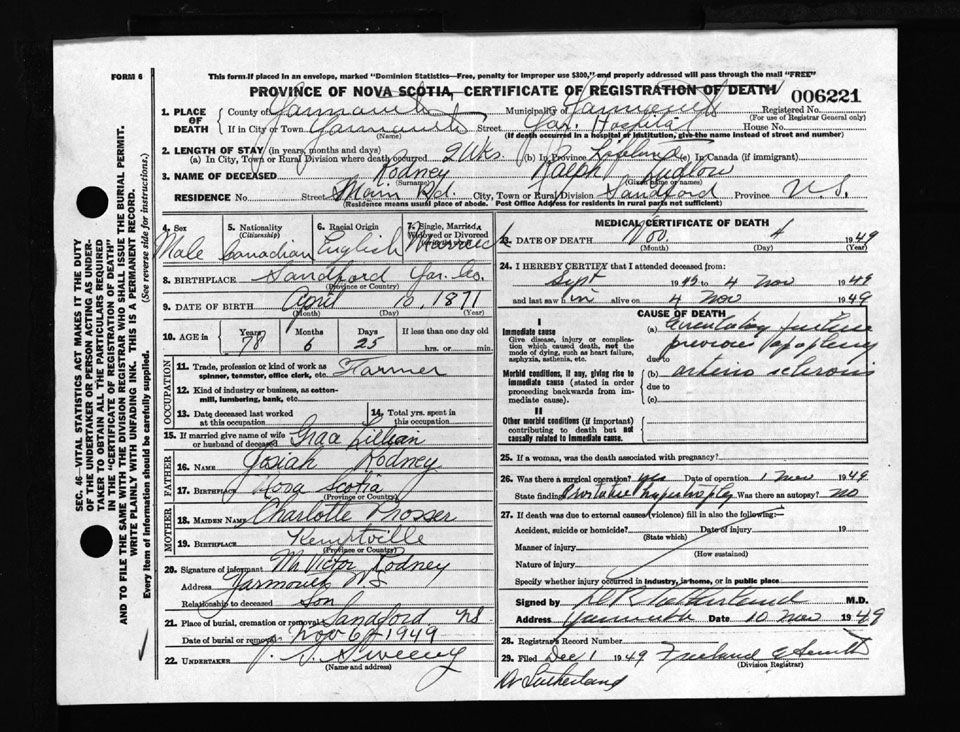 FORM 6
This form if placed in an envelope, marked "Dominion Statistics—Free, penalty for improper use $300," and properly addressed will pass through the mail "FREE"
PROVINCE OF NOVA SCOTIA, CERTIFICATE OF REGISTRATION OF DEATH
006221
1. PLACE OF DEATH
County of Yarmouth Municipality of Yarmouth Registered No.
(For use of Registrar General only)
If in City or Town Yarmouth Street Yar. Hospital House No.
(Name) (If death occurred in a hospital or institution, give the name instead of street and number)
2. LENGTH OF STAY (in years, months and days)
(a) In City, Town or Rural Division where death occurred 2 Wks. (b) In Province Lifetime (c) In Canada (if immigrant)
3. NAME OF DECEASED Rodney Ralph Ludlow
(Surname) (Given name or names)
RESIDENCE No. Street Main Rd. City, Town or Rural Division Sandford Province N.S.
(Residence means usual place of abode. Post Office Address for residents in rural parts not sufficient)
4. Sex 5. Nationality (Citizenship) 6. Racial Origin 7. Single, Married, Widowed or Divorced
Male Canadian English Married
8. BIRTHPLACE Sandford Yar. Co.
(Province or Country)
9. DATE OF BIRTH April 10, 1871
(Month) (Day) (Year)
10. AGE in Years Months Days If less than one day
78 6 25 hrs. or min.
OCCUPATION
11. Trade, profession or kind of work as spinner, teamster, office clerk, etc. Farmer
12. Kind of industry or business, as cotton-mill, lumbering, bank, etc.
13. Date deceased last worked at this occupation 14. Total yrs. spent in this occupation
15. If married give name of wife or husband of deceased Grace Lillian
FATHER
16. NAME Josiah Rodney
17. BIRTHPLACE Nova Scotia
(Province or Country)
MOTHER
18. MAIDEN NAME Charlotte Prosser
19. BIRTHPLACE Kemptville
(Province or Country)
20. Signature of informant Mr Victor Rodney
Address Yarmouth N S
Relationship to deceased Son
21. Place of burial, cremation or removal Sandford NS
Date of burial or removal Nov 6th 1949
22. UNDERTAKER Sweeny
(Name and address)
MEDICAL CERTIFICATE OF DEATH
23. DATE OF DEATH Nov. 4 1949
(Month) (Day)
24. I HEREBY CERTIFY that I attended deceased from:
Sept 1949 to 4 Nov 1949
and last saw him alive on 4 Nov 1949
CAUSE OF DEATH
I
Immediate cause
Give disease, injury or complication which caused death, not the mode of dying, such as heart failure, asphyxia, asthenia, etc.
(a) Circulatory failure
previous apoplexy
due to
Morbid conditions, if any, giving rise to immediate cause (stated in order proceeding backwards from immediate cause).
(b) arterio sclerosis
due to
(c)
II
Other morbid conditions (if important) contributing to death but not causally related to immediate cause.
25. If a woman, was the death associated with pregnancy?
26. Was there a surgical operation? yes Date of operation 1 Nov 1949
State finding Prostatic hypertrophy Was there an autopsy? no
27. If death was due to external causes (violence) fill in also the following:—
Accident, suicide or homicide? Date of injury 19
(State which)
Manner of injury
(How sustained)
Nature of injury
Specify whether injury occurred in industry, in home, or in public place
Signed by Sutherland M.D.
Address Yarmouth Date 10 Nov 1949
28. Registrar's Record Number
29. Filed Dec 1 1949 Freeland E Smith
(Division Registrar)
Dr Sutherland
SEC. 46—VITAL STATISTICS ACT MAKES IT THE DUTY
OF THE UNDERTAKER OR PERSON ACTING AS UNDER-
TAKER TO OBTAIN ALL THE PARTICULARS REQUIRED
IN THE "CERTIFICATE OF REGISTRATION OF DEATH"
AND TO FILE THE SAME WITH THE DIVISION REGISTRAR WHO SHALL ISSUE THE BURIAL PERMIT.
WRITE PLAINLY WITH UNFADING INK. THIS IS A PERMANENT RECORD.
Every item of information should be carefully supplied. (See reverse side for instructions.)